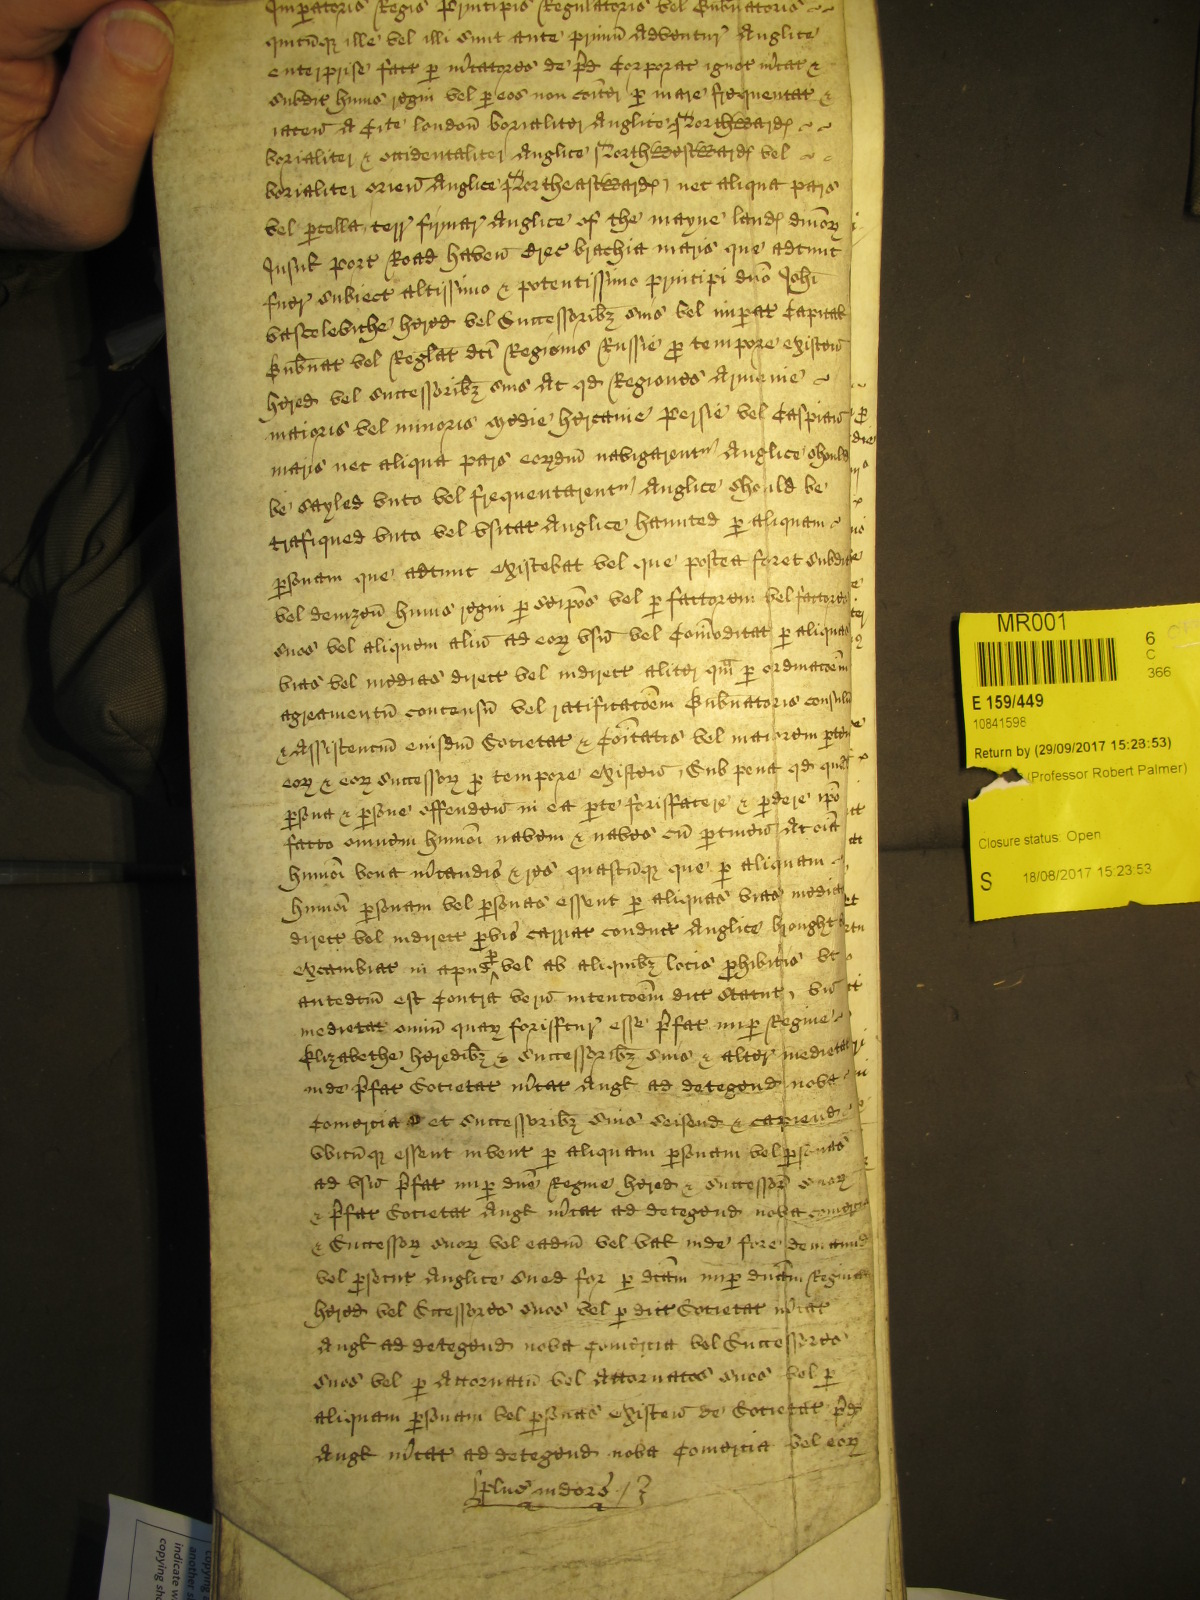 Imperatoris Regis Principis Regulatoris vel Gubnatoris
quicuqz ille vel illi sunt ante primu Adventur Anglice
enterprise fact p mcatores de pd Corporat ignot mcat &
subdit huius regni vel p eos non coiter p mare frequentat &
iacen A Cite london borialiter Anglice Northwardℯ
borialiter & occidentaliter Anglice Northwestwardℯ vel
borialiter orien Anglice Northeastwardℯ nec aliqua pars
vel pcella terr firmar Anglice of the mayne landℯ dmor
Insul port Road haven Crec brachia maris que adtunc
fuer subiect altissimo & potentissimo principi dno Johi
vascelebiche hered vel Successoribz suis vel imperat Capital
Gubnat vel Reglat dci Regionis Russie p tempore existen
hered vel successoribz suis Ac qd Regiones Armenie
maioris vel minoris Medie hercanie Persie vel Caspian
maris nec aliqua pars eordm navigarentr Anglice should
be sayled vnto vel frequentarentr Anglice should be
trafiqued vnto vel vsitat Anglice haunted p aliquam
psonam que adtunc existebat vel que postea foret subdit
vel denizen huius regni p seipos vel p factorem vel factores
suos vel aliquem aliu ad eor vsu vel Comoditat p aliquas
vias vel medias direct vel indirect aliter qm p ordinacoem
agreamentu concensu vel ratificacoem Gubnatoris consulu
& Assistenciu eiusdm Societat & Coitatis vel maiorem ptem
eor & eor successor p tempore existen Sub pena qd quel
psona & psone offenden in ea pte forisfacere & pdere ipo
facto omnem humoi navem & naves cu ptinen Ac oia
humoi bona mcandis & res quascuqz que p aliquam
humoi psonam vel psonas essent p aliquas vias media
direct vel indirect pvis carriat conduct Anglice brought
excambiat in apus vel ab aliquibz locis phibitis vt
antedcm est Contra veru intencoem dict Statut, vn
medietat omiu quar forisfctur esse pfat nup Regine
Elizabethe heredibz & Successoribz suis & alter medietat
inde pfat Societat mcat Angl ad detegend nova
Comercia et Successoribz suis seisend & capiend
vbicuqz essent invent p aliquam psonam vel psonas
ad vsu pfat nup dne Regine hered & successor suor
& pfat Societat Angl mcat ad detegend nova comercia
& Successor suor vel eadm vel val inde fore demand
vel psecut Anglice sued for p dcam nup dnam Reginam
hered vel Sccessores suos vel p dict Societat mcat
Angl ad detegend nova Comercia vel Successores
suos vel p Attornatu vel Attornatos suos vel p
aliquam psonam vel psonas existen de Societat pd
Angl mcat ad detegend nova Comercia vel eor
Plus indors
MR001
6
C
366
E 159/449
10841598
Return by (29/09/2017 15:23:53)
(Professor Robert Palmer)
Closure status: Open
S 18/08/2017 15:23:53
copying
another
indicate w
copying sho